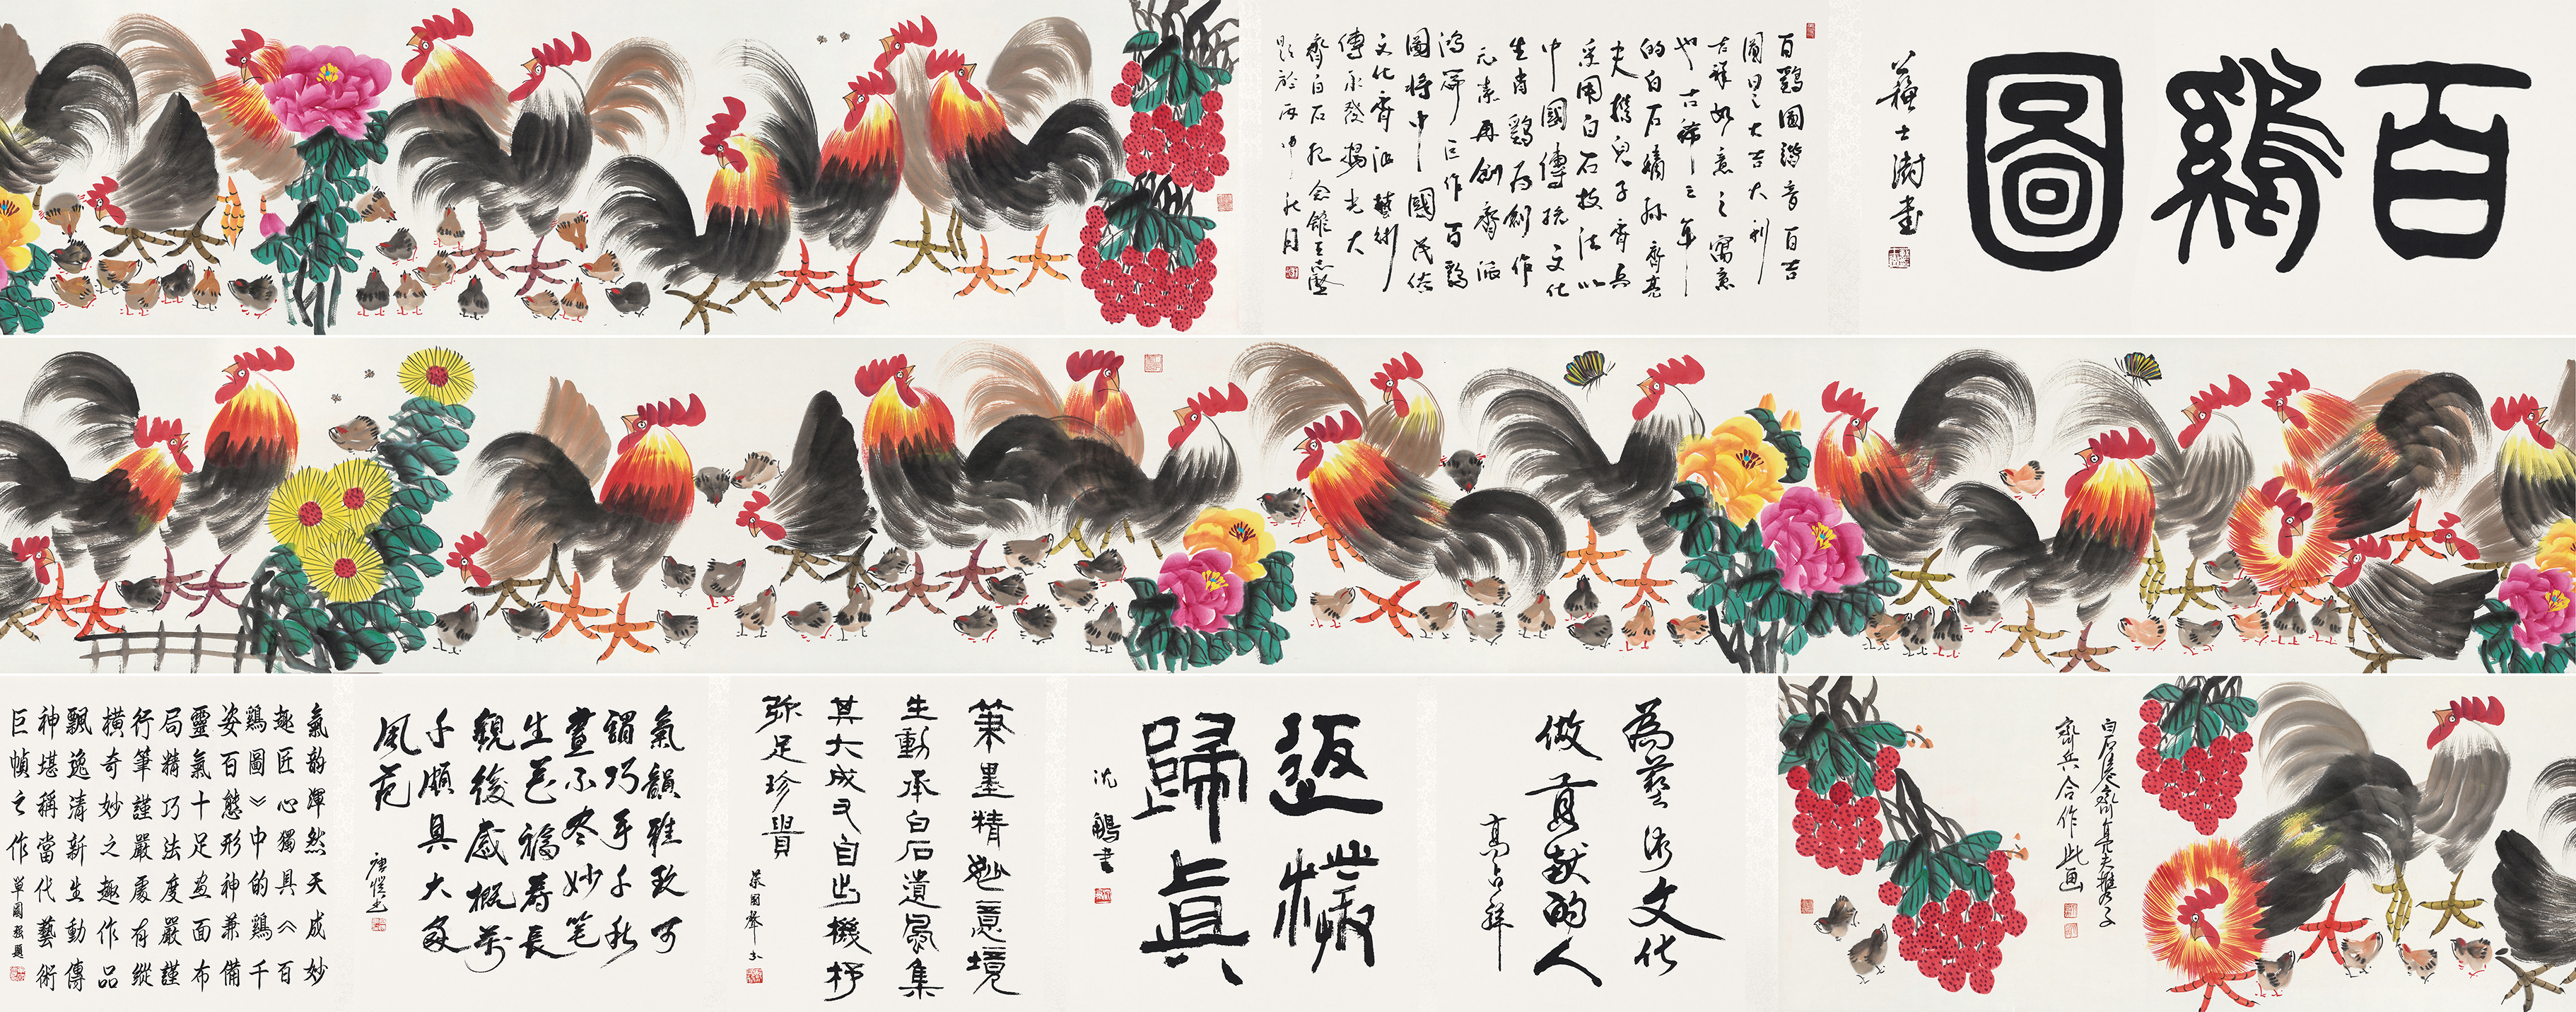 百鷄圖
蘇士澍書
百鷄圖諧音百吉
圖曰之大吉大利
吉祥如意之寓意
也古稀之年
的白石嫡孫齊亮
夫携兒子齊兵
采用白石技法以
中國傳統文化
生肖鷄爲創作
元素再創齊派
鴻篇巨作百鷄
圖將中國民俗
文化齊派藝術
傳承發揚光大
齊白石紀念館
題於丙申秋月
白石後裔齊亮夫携子
齊兵合作此画
為藝術文化
做貢獻的人
高占祥
返樸
歸真
沈鵬書
筆墨精妙意境
生動承白石遺風集
其大成又自出機杼
弥足珍貴
氣韻雅致可
謂巧手千秋
畫不盡妙笔
生花福壽長
觀後感概萬
千頗具大家
風范
氣韵渾然天成妙
趣匠心獨具《百
鷄圖》中的鷄千
姿百態形神兼備
靈氣十足畫面布
局精巧法度嚴謹
行筆謹嚴處有縱
橫奇妙之趣作品
飄逸清新生動傳
神堪稱當代藝術
巨幀之作
單國强題